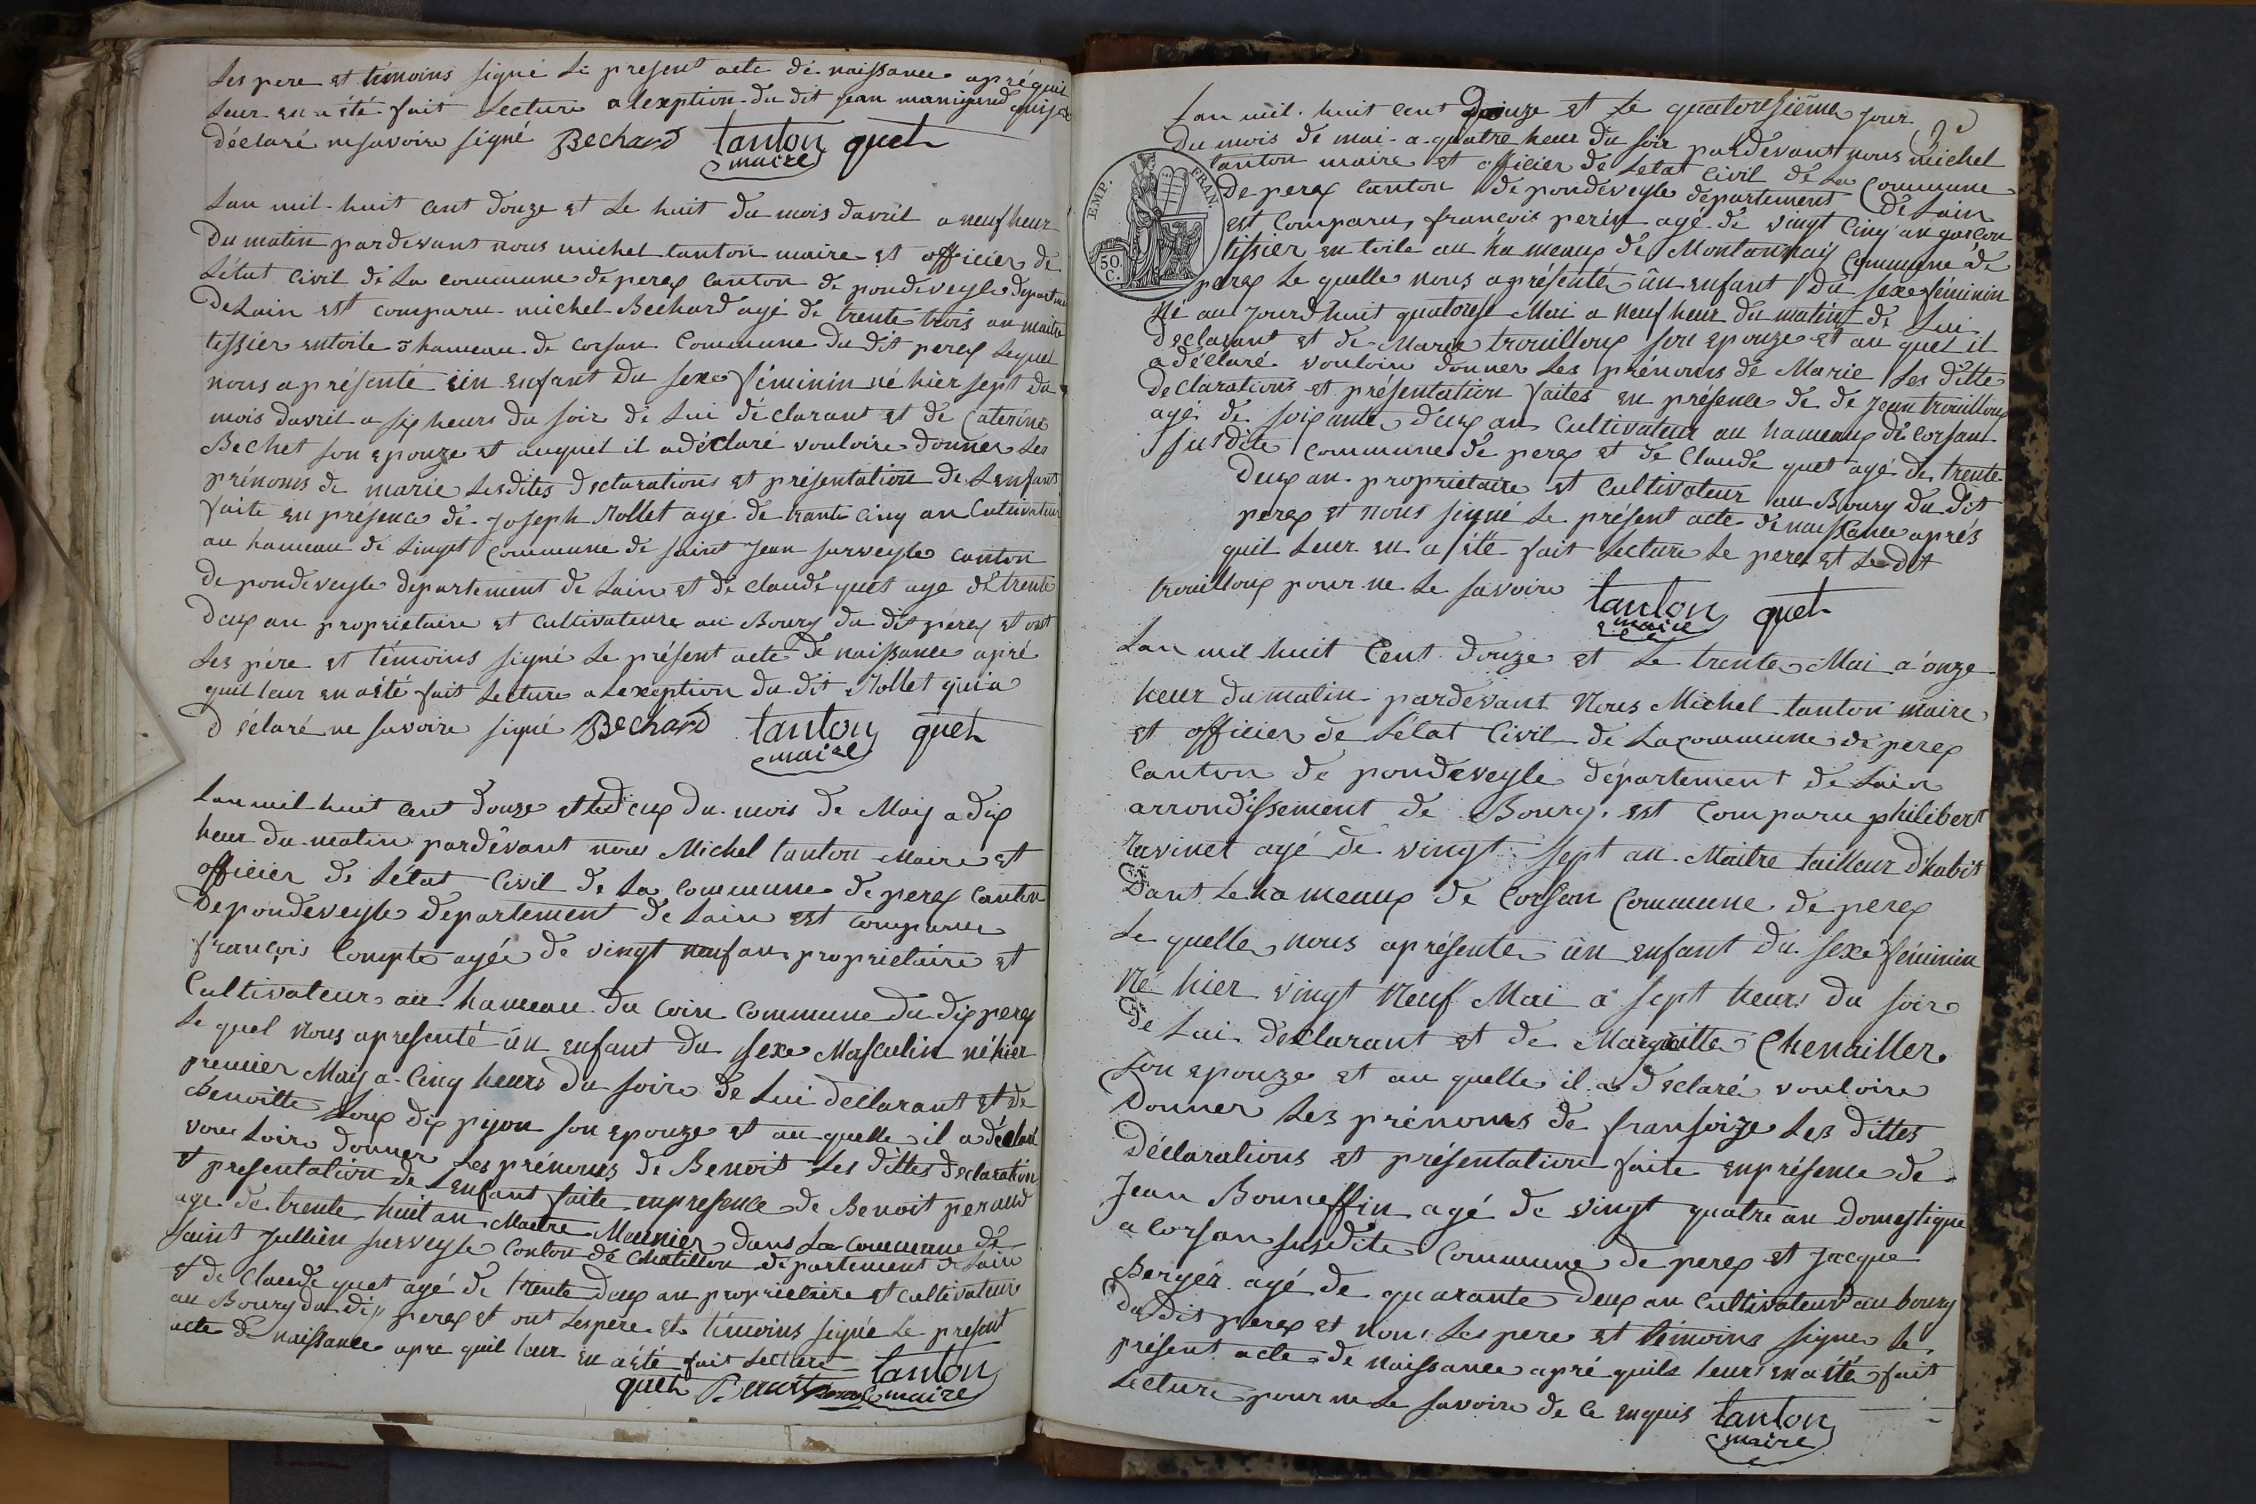 Les pere et témoins signé Le present acte de naissance apré quil
Leur en a été fait Lecture a lexption du dit jean manigand qui a
déclaré ne savoire signé Bechard tanton quet
maire
Lan mil huit cent douze et Le huit du mois davril a neuf heur
Du matin pardevant nous michel tanton maire et officier de
Létat Civil de La commune de perex Canton de pondeveyle departement
De Lain est comparu michel Bechard agé de trente trois an maitre
tissier entoile hameau de Corsan Commune du dit perex Lequel
nous a présenté ûn enfant du sexe féminin né hier sept du
mois davril a six heurs du soir de Lui déclarant et de Caterine
Bechet son epouze et auquel il a déclaré vouloire donner Les
prénoms de marie Lesdites declarations et présentation de Lenfant
faite en présence de Joseph Mollet age de trante cinq an Cutivateur
au hameau de Singet Commune de saint Jean surveyle canton
de pondeveyle departement de Lain et de claude quet age de trente
deux an proprietaire et cultivateure au Bourg du dit pérex et ont
Les pére et témoins signé Le présent acte de naissance apré
quil leur en a été fait Lecture a Lexeption du dit Mollet qui a
déclaré ne savoire signé Bechard tanton quet
maire
Lan mil huit cent douze et Le deux du mois de May a dix
heur du matin pardevant nous Michel tanton Maire et
officier de Létat Civil de La Commune de perex Canton
De pondeveyle departement de Lain est comparu
françois Compte agée de vingt neuf an proprietaire et
Cultivateur au hameau du Coin Commune du dix perex
Le quel nous a presenté ûn enfant du sexe Masculin né hier
premier May a Cinq heurs du soire de Lui déclarant et de
Benoitte Loup dix pijon son epouze et au quelle il a declaré
vou loire donner Les prénoms de Benoit Les dittes declaration
et presentation de Lenfant faite enpresence de Benoit peraud
age de trente huit an Maitre Meunier dans La commune de
saint Jullien surveyle Conton de Chatillon departement de Lain
et de Claude quet agé de trente deux an proprietaire et cultivateur
au Bourg du dix perex et ont Les pere et témoins signée Le present
acte de naissance apre quil leur en a été fait Lecture tanton
quet Benoit maire
Lan mil huit cent Douze et Le quatoresiéme jour
Du mois de mai a quatre heur du soir pardevant nous michel
tanton maire et officier de Létat Civil de La Commune
De perex Canton de pondeveyle departement de Lain
est Comparu, francois perin agé de vingt Cinq an garcon
tissier en toile au ha meaux de Montannay Commune de
perex Le quelle nous a présenté ûn enfant du sexe féminin
Né au jourd huit quatorse Mai a neuf heur du matin de Lui
Declarant et de Marie trouilloux son epouze et au quel il
a déclaré vouloir donner Les prénoms de Marie Les ditte
Declarations et présentation faites en présence de de Jean trouilloux
agé de soixante deux an Cultivateur au hameaux de Corsan
susdite Commune de perex et de Claude quet agé de trente
Deux an proprietaire et Cultivateur au Bourg du dit
perex et nous signé Le présent acte de naissance aprés
quil Leur en a été fait Lecture Le pere et Le dit
trouilloux pour ne Le savoire tanton quet
maire
EMP. FRAN.
50 C.
Lan mil huit Cent douze et Le trente Mai a onze
heur du matin pardevant Nous Michel tanton maire
et officier de Létat Civil de La commune de perex
Canton de pondeveyle département de Lain
arrondissement de Bourg. est Comparu philibert
ravinet agé de vingt sept an Maitre tailleur dhabit
Dant Le ha meaux de Corsan Commune de perex
Le quelle nous a présente ûn enfant du sexe féminin
Né hier vingt Neuf Mai a sept heurs du soire
de Lui declarant et de Chenailler
son epouze et au quelle il a declaré vouloire
Donner Les prénoms de fransoize Les dittes
Déclarations et présentation faite enprésence de
Jean Bonneffin agé de vingt quatre an domestique
a Corsan susdite Commune de perex et Jacque
Berger agé de quarante deux an Cultivateur au bourg
Du dit perex et nous Les pere et témoins signer le
présent acte de naissance apré quils leur en a été fait
Lecture pour ne Le savoire de Ce enquis tanton
maire